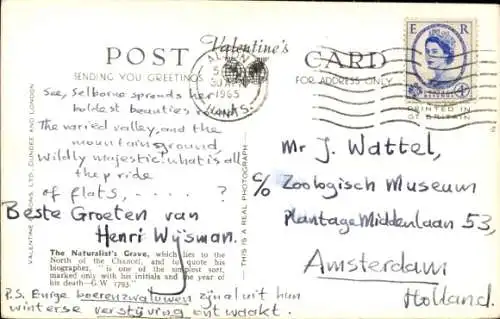 POST Valentine's CARD
SENDING YOU GREETINGS
FOR ADDRESS ONLY
E R
POSTAGE REVENUE
PRINTED IN
GT. BRITAIN
ALTON
1965
HANTS.
See, Selborne spreads her
boldest beauties
The varied valley, and the
mountain ground,
wildly majestic: what is all
the pride
of flats, - . . . . ?
Beste Groeten van
Henri Wijsman.
The Naturalist's Grave, which lies to the
North of the Chancel, and to quote his
biographer, "is one of the simplest sort,
marked only with his initials and the year of
his death—G.W. 1793."
P.S. Enige boerenzwaluwen zijn al uit hun
winterse verstijving ontwaakt.
VALENTINE & SONS, LTD., DUNDEE AND LONDON
THIS IS A REAL PHOTOGRAPH
Mr J. Wattel,
c/o Zoologisch Museum
Plantage Middenlaan 53,
Amsterdam
Holland.